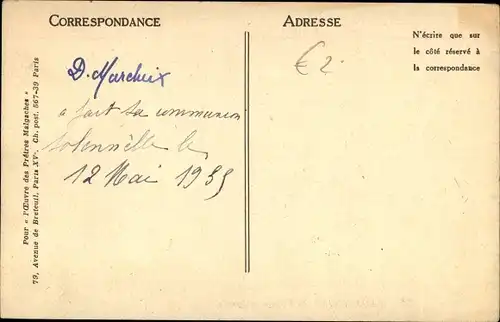 CORRESPONDANCE
ADRESSE
N'écrire que sur
le côté réservé à
la correspondance
€ 2.
D. Marcheix
a fait sa communion
solennelle le
12 Mai 1935
Pour « l'Œuvre des Prêtres Malgaches »
79, Avenue de Breteuil. Paris XVe. Ch. post. 567-39 Paris